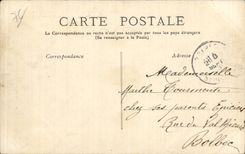 CARTE POSTALE
La Correspondance au recto n'est pas acceptée par tous les pays étrangers
(Se renseigner à la Poste)
Correspondance
Mademoiselle
Marthe
chez ses parents Epiciers
Rue du Val Ricard
Bolbec